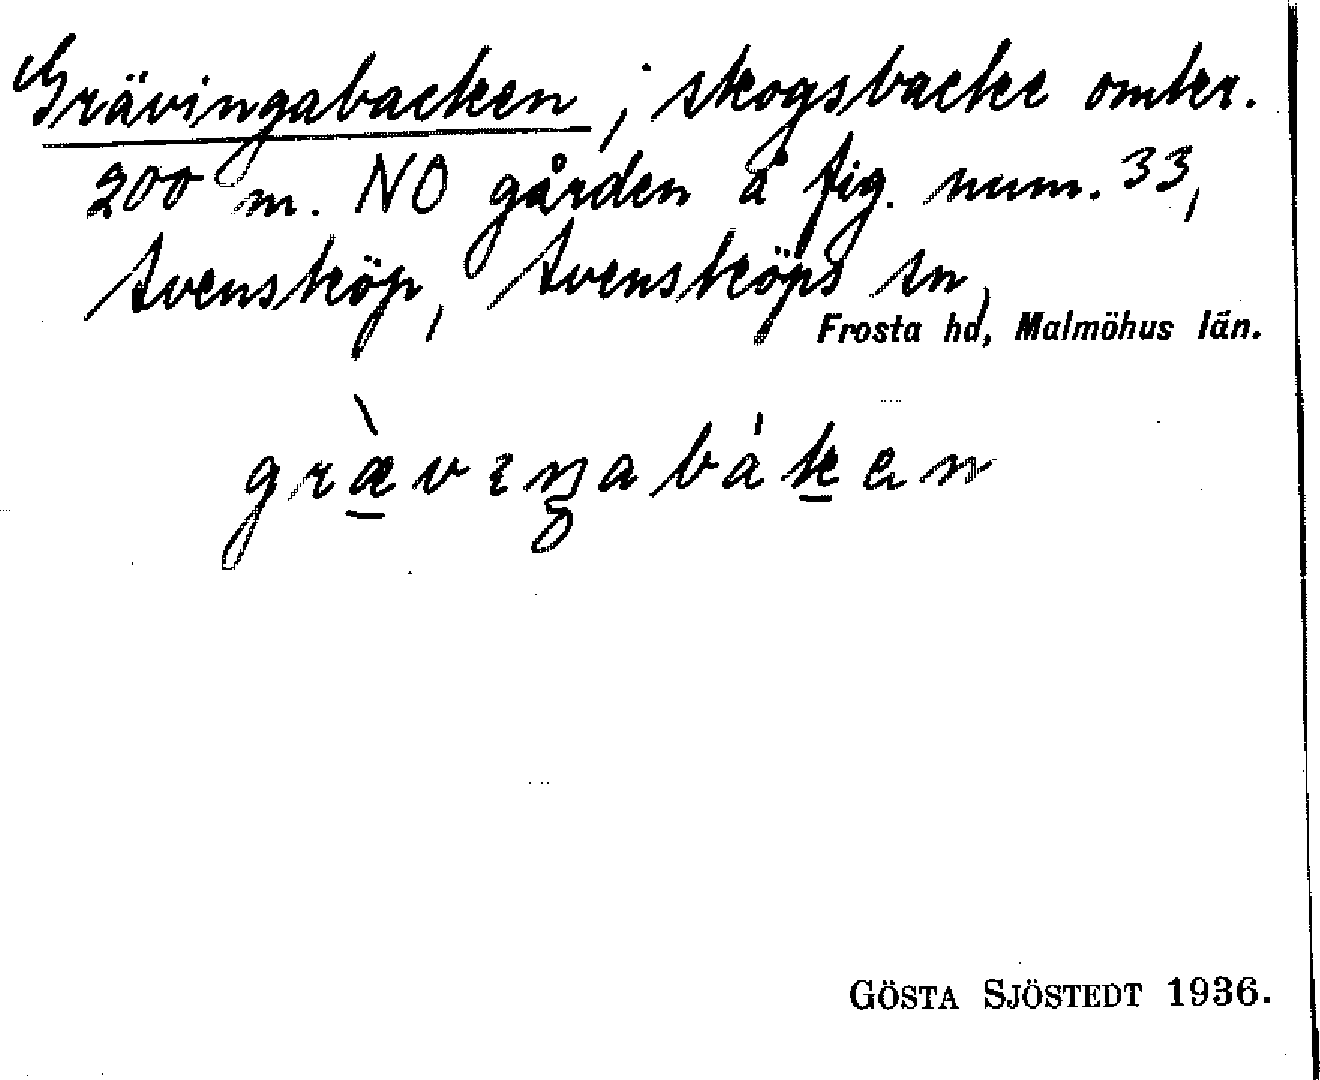 Grävingabacken; skogsbacke omkr.
200 m. NO gården å fig. num. 33,
Svensköp, Svensköps sn,
Frosta hd, Malmöhus län.
græ̠̀vıŋabák̠ən
GÖSTA SJÖSTEDT 1936.